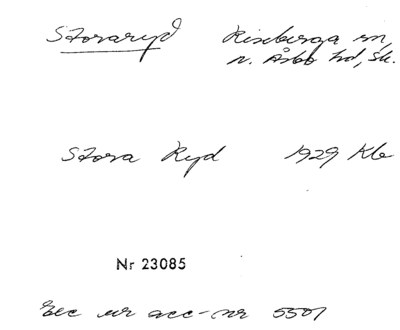 Storaryd Riseberga sn,
n. Åsbo hd, Sk.
Stora Ryd 1929 Kle
Nr 23085
Exc ur acc-nr 5501